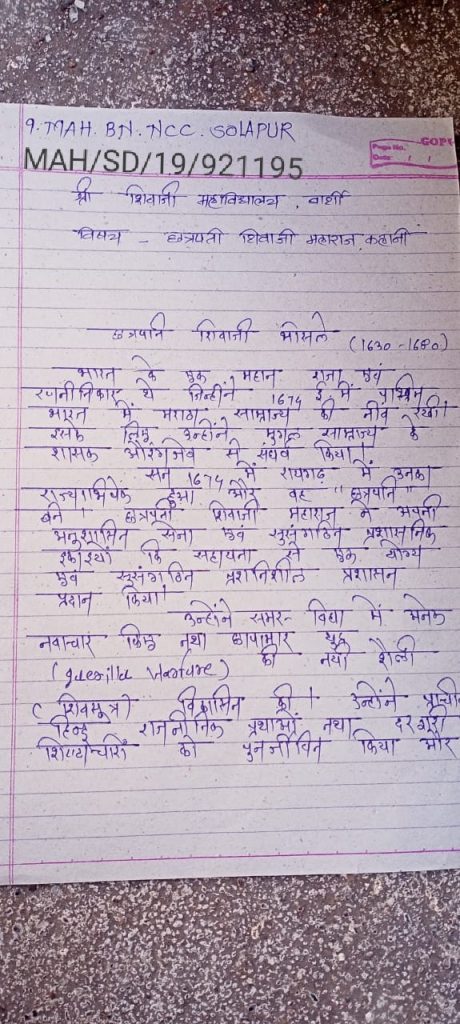 9. MAH. BN. NCC. SOLAPUR
COPY
Page No.
Date: / /
MAH/SD/19/921195
श्री शिवाजी महाविद्यालय, बार्शी
विषय - छत्रपती शिवाजी महाराज कहानी
छत्रपति शिवाजी भोसले (1630-1680)
भारत के एक महान राजा एवं
रणनीतिकार थे जिन्होंने 1674 ई में पश्चिम
भारत में मराठा साम्राज्य की नीव रखी।
इसके लिए उन्होंने मुगल साम्राज्य के
शासक औरंगजेब से संघर्ष किया।
सन 1674 में रायगढ़ में उनका
राज्याभिषेक हुआ और वह "छत्रपति"
बने। छत्रपती शिवाजी महाराज ने अपनी
अनुशासित सेना एवं सुसंगठित प्रशासनिक
इकाइयों कि सहायता से एक योग्य
एवं सुसंगठित प्रशासन
प्रदान किया।
उन्होंने समर-विद्या में अनेक
नवाचार किए तथा छापामार युद्ध
(Guerilla Warfare) की नयी शैली
(शिवसूत्र) विकसित की। उन्होंने प्राचीन
हिन्दू राजनीतिक प्रथाओं तथा दरबारी
शिष्टाचारों को पुनर्जीवित किया और